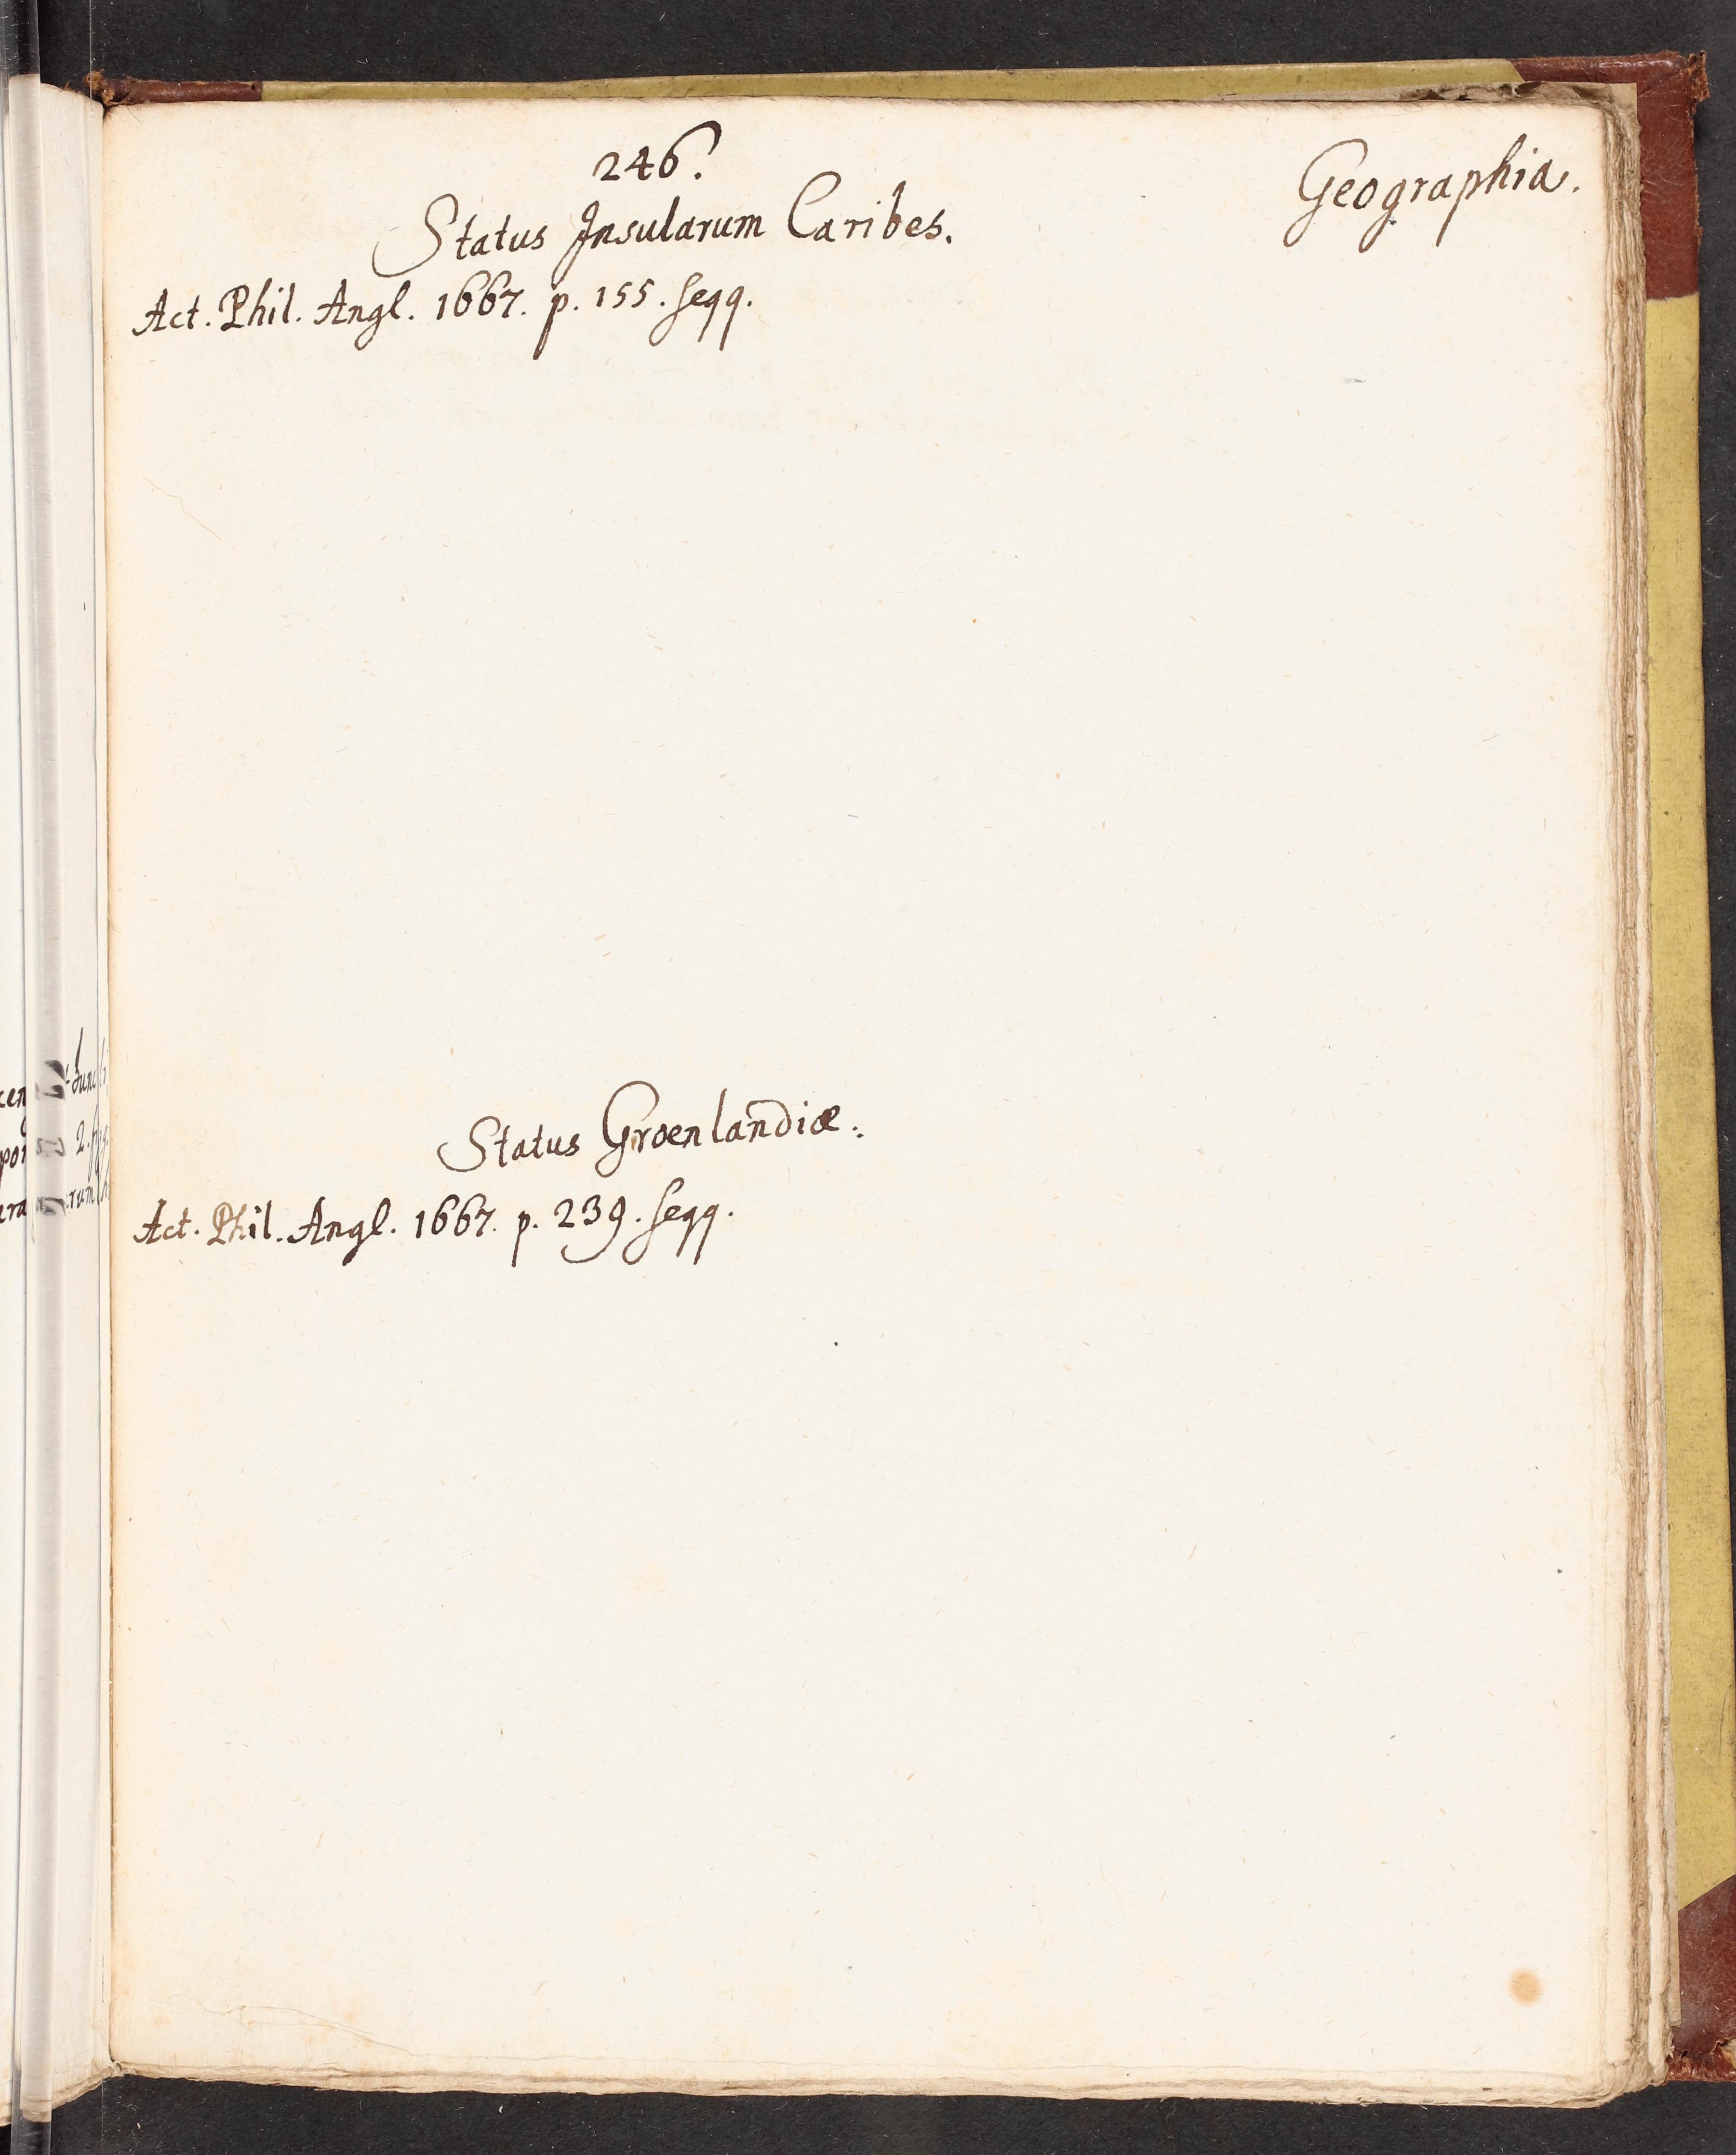 246.
Geographia.
Status Insularum Caribes.
Act. Phil. Angl. 1667. p. 155. seqq.
Status Groenlandiæ.
Act. Phil. Angl. 1667. p. 239. seqq.